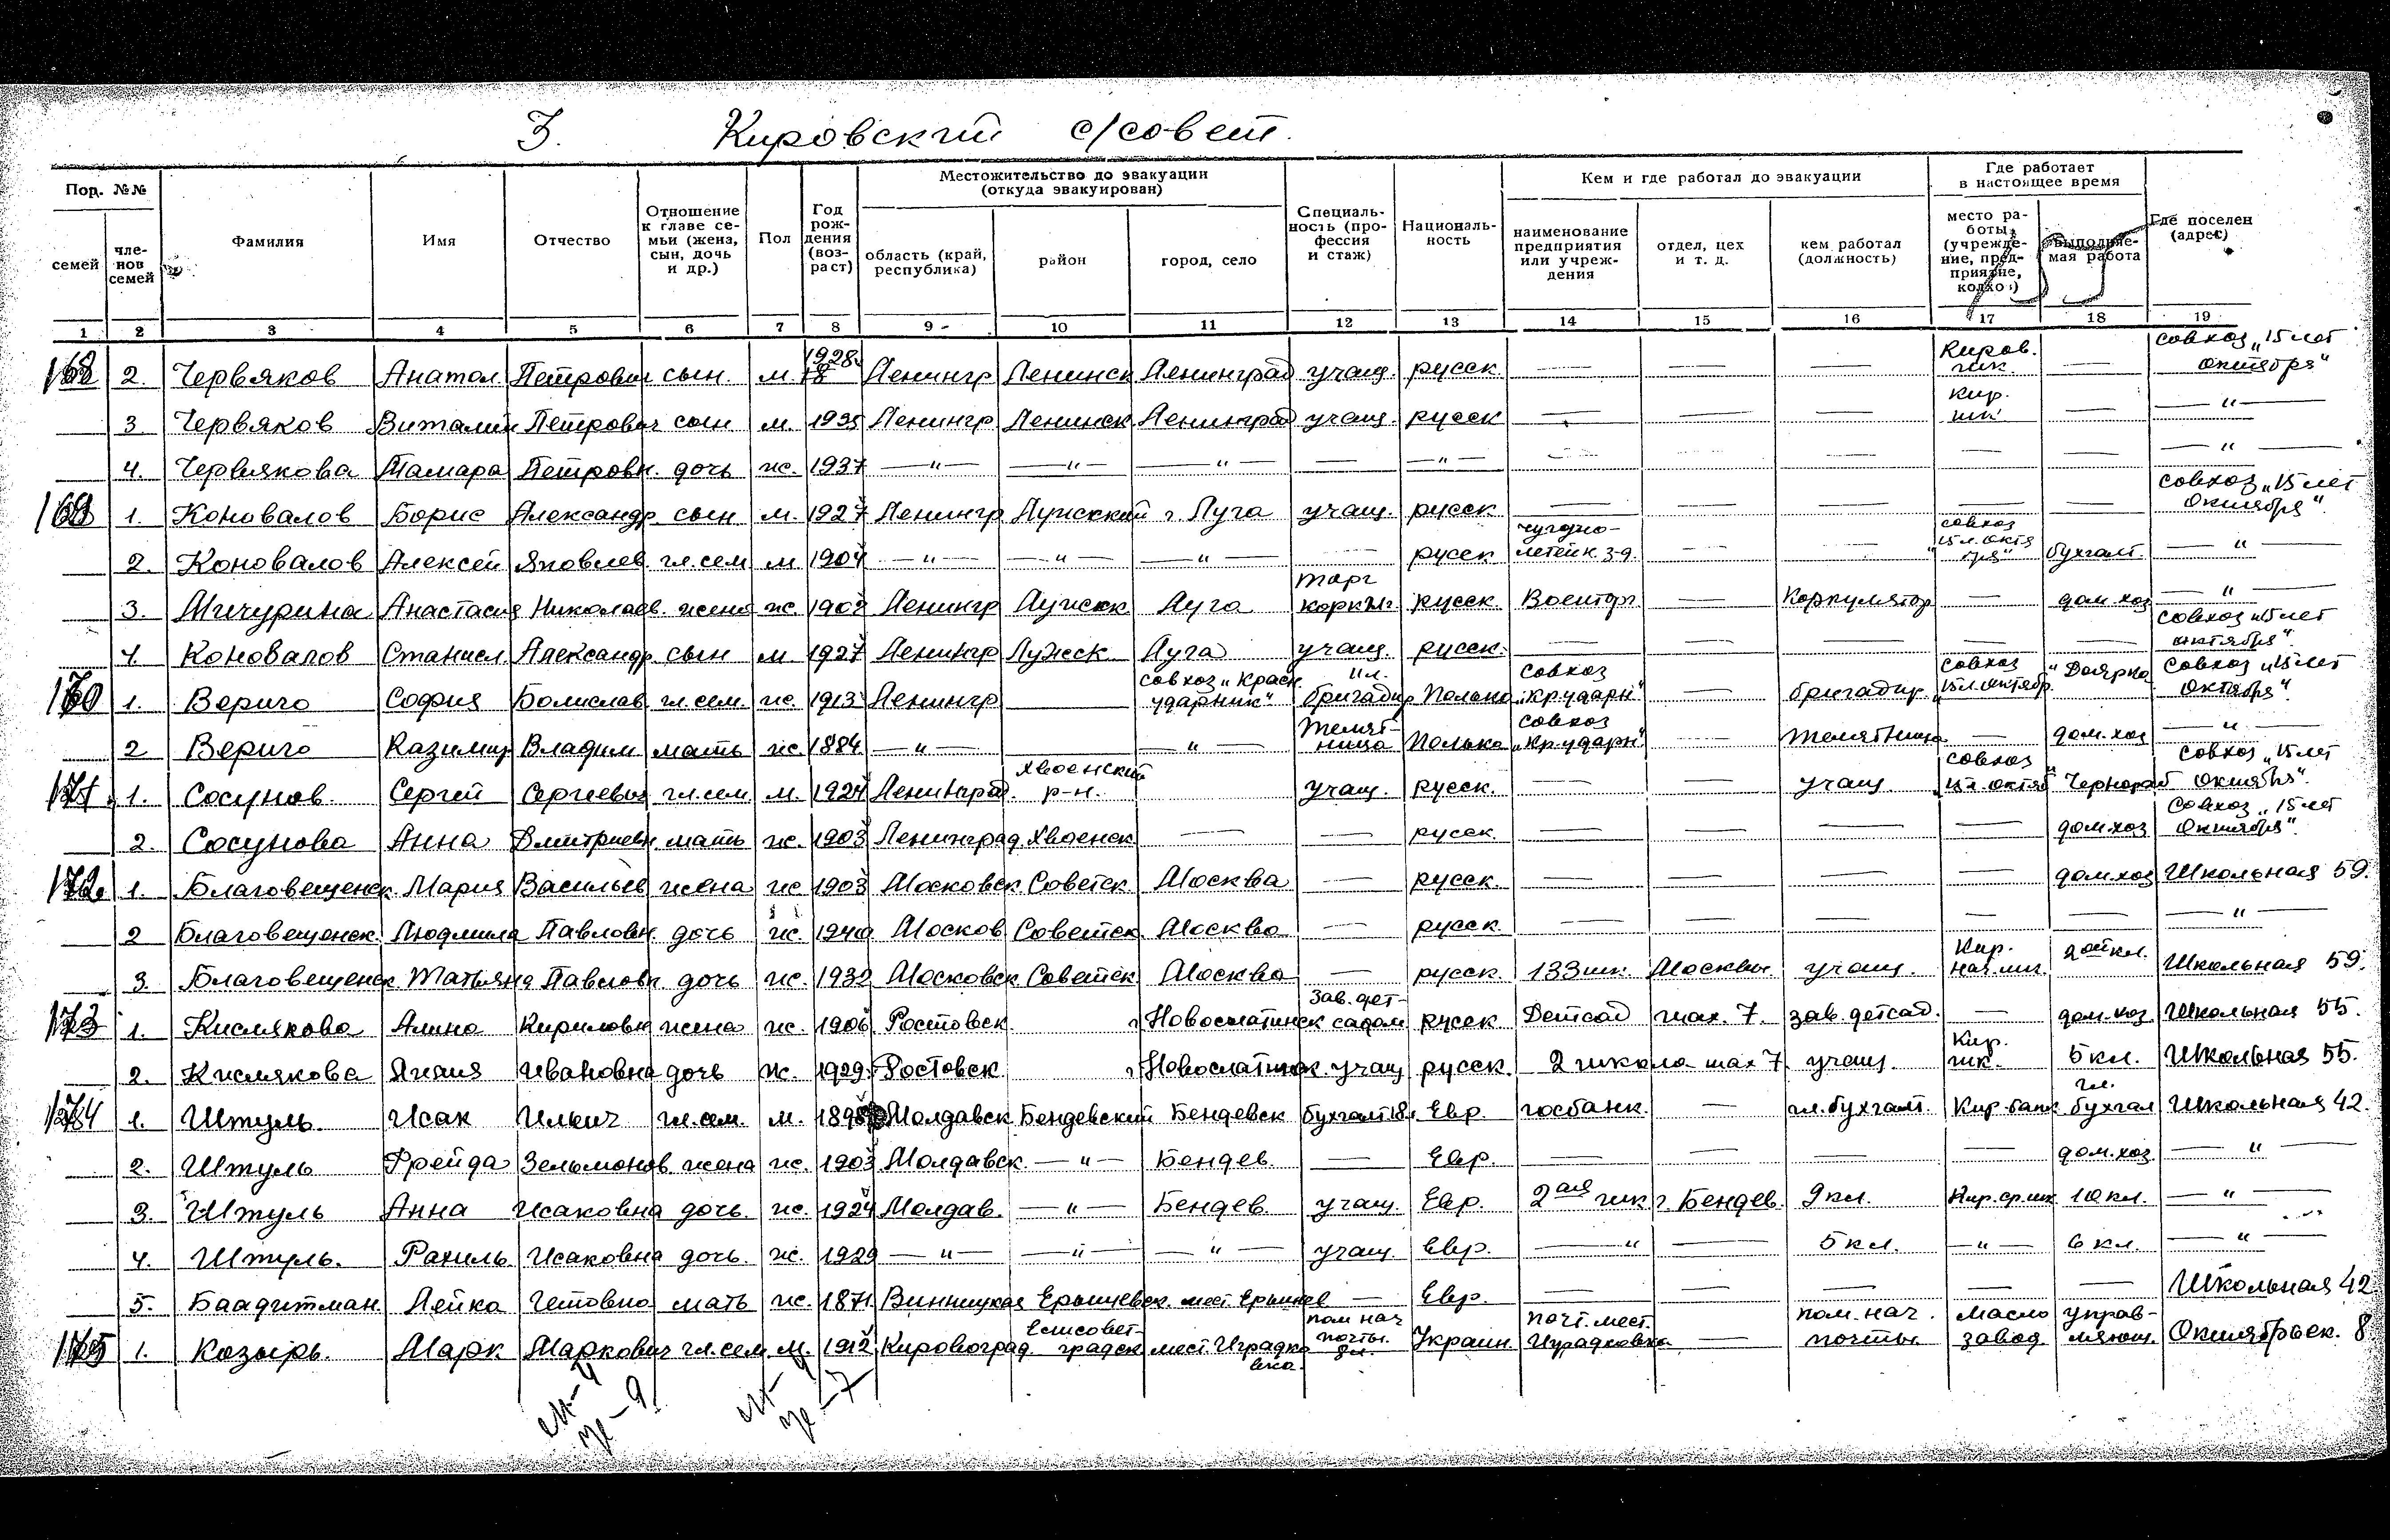 3. Кировский с/совет.
Пор. №№ семей | членов семей | Фамилия | Имя | Отчество | Отношение к главе семьи (жена, сын, дочь и др.) | Пол | Год рождения (возраст) | Местожительство до эвакуации (откуда эвакуирован) область (край, республика) | район | город, село | Специальность (профессия и стаж) | Националь-ность | Кем и где работал до эвакуации наименование предприятия или учреж-дения | отдел, цех и т. д. | кем работал (должность) | Где работает в настоящее время место ра-боты, (учрежде-ние, пред-приятие, колхоз) | выполняе-мая работа | Где поселен (адрес)
1 2 3 4 5 6 7 8 9 10 11 12 13 14 15 16 17 18 19
168 2. Червяков Анатол Петрович сын. м. 1928 Ленингр Ленинск Ленинград учащ. русск. — — — Киров. шк — совхоз „15 лет Октября"
3 Червяков Виталий Петрович сын м. 1935 Ленингр Ленинск Ленинград учащ. русск — — — Кир. шк — — " —
4. Червякова Тамара Петровн. дочь ж. 1937 — " — — " — — " — — — " — — — — — — — " —
169 1. Коновалов Борис Александр. сын м. 1927 Ленингр Лужский г Луга учащ. русск — — — — — совхоз „15 лет Октября".
2. Коновалов Алексей Яковлев. гл. сем м 1904 — " — — " — — " — — русск чугуно-летейн. з-д. — — совхоз „15 л. Октября" бухгалт. — " —
3. Мичурина Анастасия Николаев. жена ж. 1902 Ленингр Лужск Луга торг русск. Военторг — Коркулятор — дом. хоз — " —
4 Коновалов Станисл Александр. сын м. 1927 Ленингр Лужск Луга учащ. русск. — — — — — совхоз „15 лет октября".
170 1. Верыго София Болислав гл. сем. ж. 1913 Ленингр — совхоз „Красн. ударник" бригадир Полька совхоз „Кр. ударн" — бригадир совхоз „15 л. октябр." Доярка совхоз „15 лет Октября"
2 Верыго Казимир Владим мать ж. 1884 — " — — " — телят-ница Полька совхоз „Кр. ударн" — телятница — дом. хоз — " —
171 1. Сосунов. Сергей Сергеевич гл. сем м. 1924 Ленинград. Хвоенский р-н. учащ. русск. — — учащ совхоз „15 л. октяб" Чернораб совхоз „15 лет Октября".
2. Сосунова Анна Дмитриевн. мать ж. 1903 Ленинград Хвоенск — — русск. — — — — дом.хоз совхоз „15 лет Октября".
172. 1. Благовещенск. Мария Васильев жена ж 1903 Московск Советск Москва — русск. — — — — дом.хоз Школьная 59.
2 Благовещенск. Людмила Павловн. дочь ж. 1940 Москов Советск Москва — русск. — — — — — — " —
3. Благовещенск Татьяна Павловн. дочь ж. 1932 Московск Советск Москва — русск. 133 шк. Москвы учащ. Кир. нач. шк. 2ой кл. Школьная 59.
173 1. Кислякова Алина Кириловн жена ж. 1906 Ростовск г Зав. дет-садом русск Детсад шах. 7. зав. детсад. — дом. хоз Школьная 55.
2. Кислякова Ивановна дочь ж. 1929 Ростовск г учащ русск. 2 школа шах 7 учащ. Кир. шк. 5 кл. Школьная 55.
174 1. Штуль. Исак Ильич гл. сем. м. 1898 Молдавск Бендевский Бендевск бухгалт 18 л. Евр. госбанк. — гл. бухгалт. Кир. банк гл. бухгал Школьная 42.
2. Штуль Фрейда Зельмонов. жена ж. 1903 Молдавск. — " — Бендев. — Евр. — — — — дом. хоз — " —
3. Штуль Анна Исаковна дочь. ж. 1924 Молдав. — " — Бендев учащ. Евр. 2ая шк г. Бендев. 9 кл. Кир. ср. шк. 10 кл. — " —
4. Штуль. Рахиль Исаковна дочь. ж. 1929 — " — — " — — " — учащ. Евр. — " — — 5 кл. — " — 6 кл. — " —
5. Лейка мать ж. 1871. Винницкая — Евр. — — — — — Школьная 42
175 1. Козырь. Марк Маркович гл. сем. м. 1912 Кировоград Елисовет-градск мест. пом нач почты. 8 л. Украин. почт. мест. — пом. нач. почты. масло завод управ-ляющ. Октябрьск. 8
м-4 ж-9
м-4 ж-7